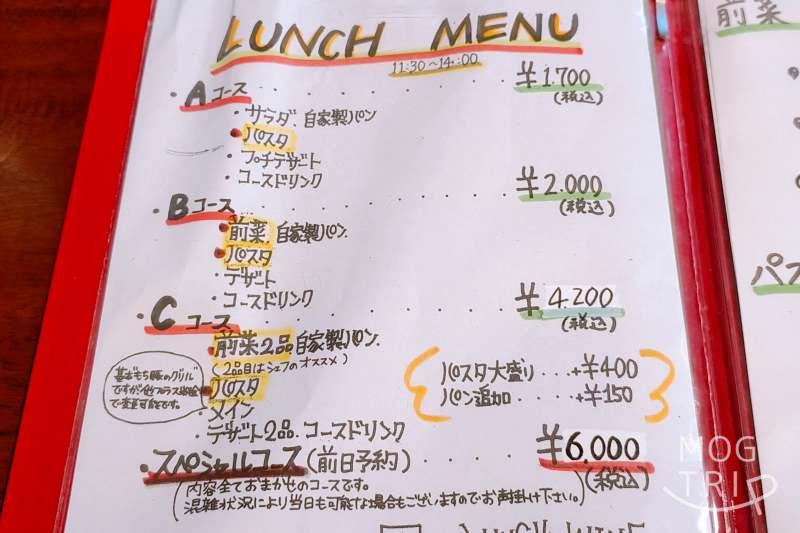 LUNCH MENU
11:30~14:00
・Aコース ¥1.700
(税込)
・サラダ.自家製パン
・パスタ
・プチデザート
・コースドリンク
・Bコース ¥2.000
(税込)
・前菜.自家製パン.
・パスタ
・デザート
・コースドリンク
・Cコース ¥4.200
(税込)
・前菜2品.自家製パン.
(2品目はシェフのオススメ)
・パスタ
・メイン
・デザート2品.コースドリンク
基本もち豚のグリル
ですが
で変更可能です。
パスタ大盛り...+¥400
パン追加...+¥150
・スペシャルコース(前日予約) ¥6.000
(税込)
(内容全ておまかせのコースです。
混雑状況により当日も可能な場合もございますのでお声掛け下さい。)
LUNCH WINE
前菜
パス
MOG
TRIP